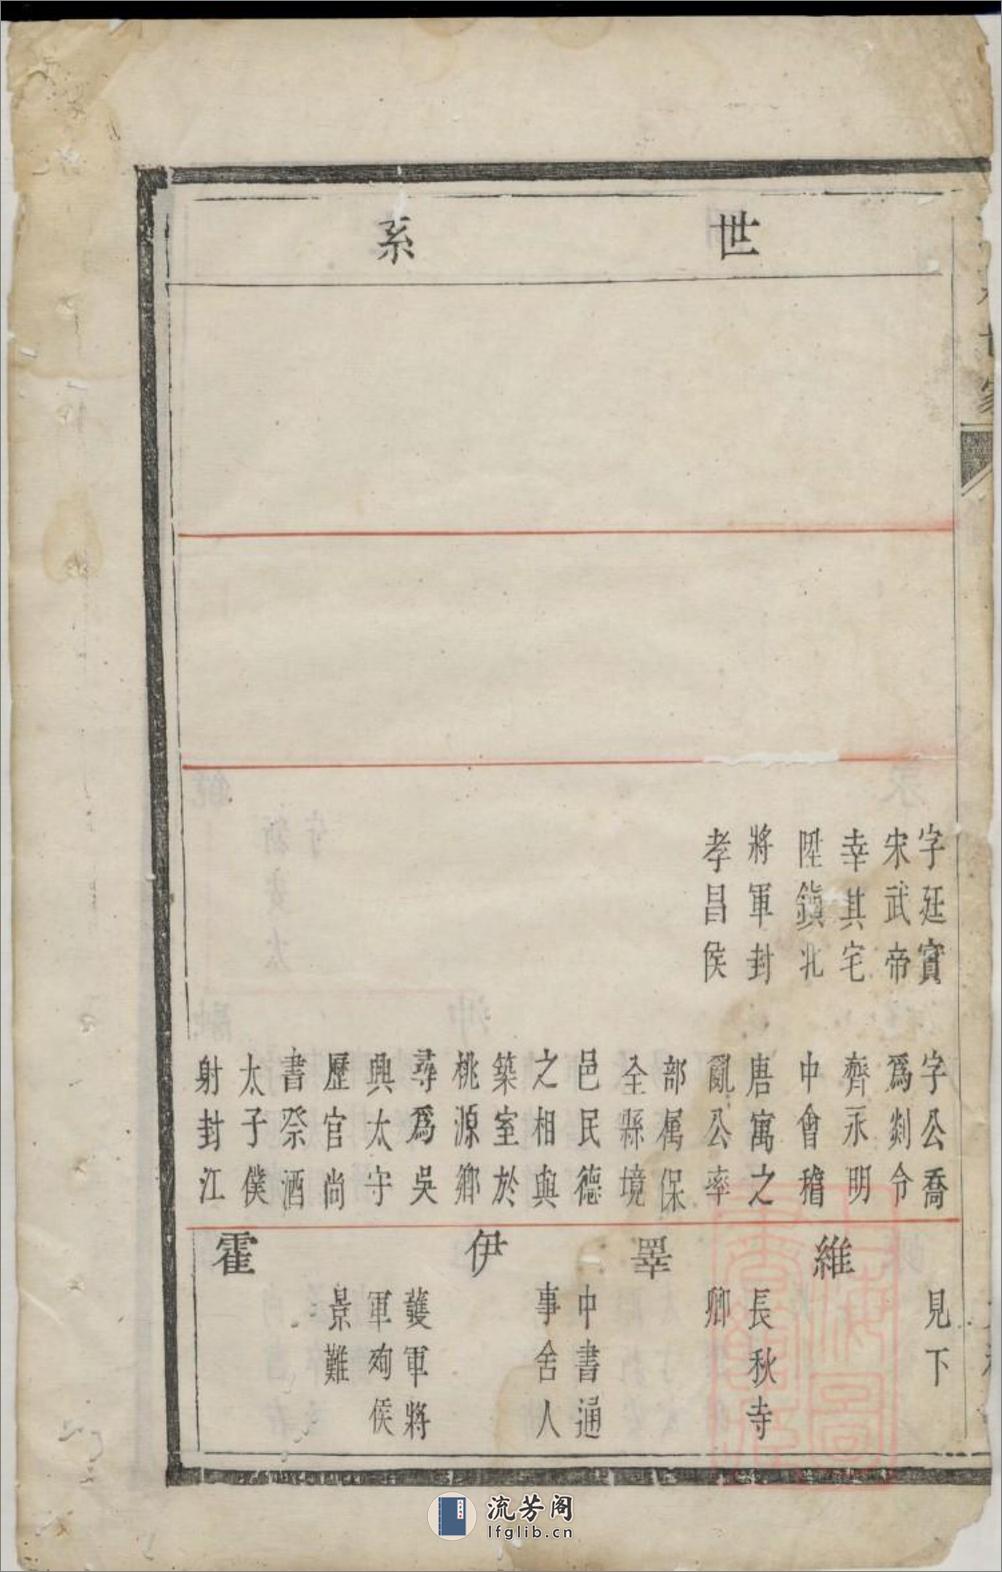 世系
字廷實
宋武帝
幸其宅
陞鎮北
將軍封
孝昌侯
字公喬
爲剡令
齊永明
中會稽
唐寓之
亂公率
部属保
全縣境
邑民德
之相與
築室於
桃源鄉
尋爲吳
興太守
歷官尚
書祭酒
太子僕
射封江
見下
維
長秋寺
卿
睪
中書通
事舍人
伊
護軍將
軍殉侯
景難
霍
流芳阁
lfglib.cn